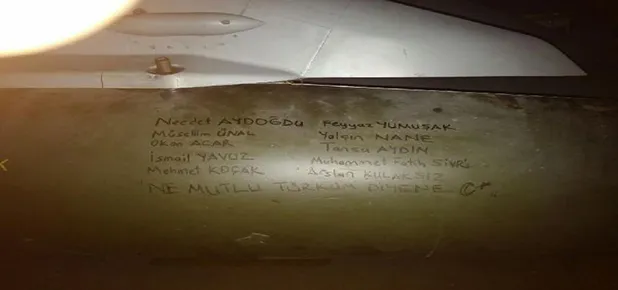 Necdet AYDOĞDU Feyyaz YUMUŞAK
Müsellim ÜNAL Yalçın NANE
Okan ACAR Tansu AYDIN
İsmail YAVUZ Muhammet Fatih SİVRİ
Mehmet KOÇAK Arslan KULAKSIZ
NE MUTLU TÜRKÜM DİYENE C*